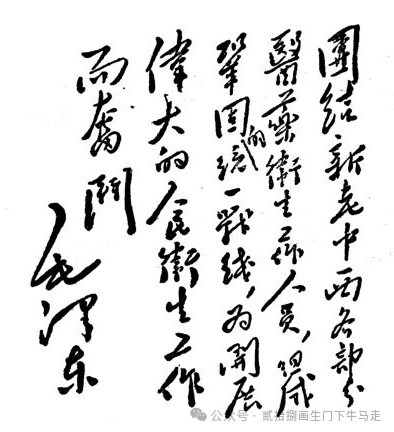 團結新老中西各部分
醫藥衛生工作人員，組成
鞏固的統一戰綫，为開展
偉大的人民衛生工作
而奮鬥
毛澤东
公众号·贰拾捌画生门下牛马走